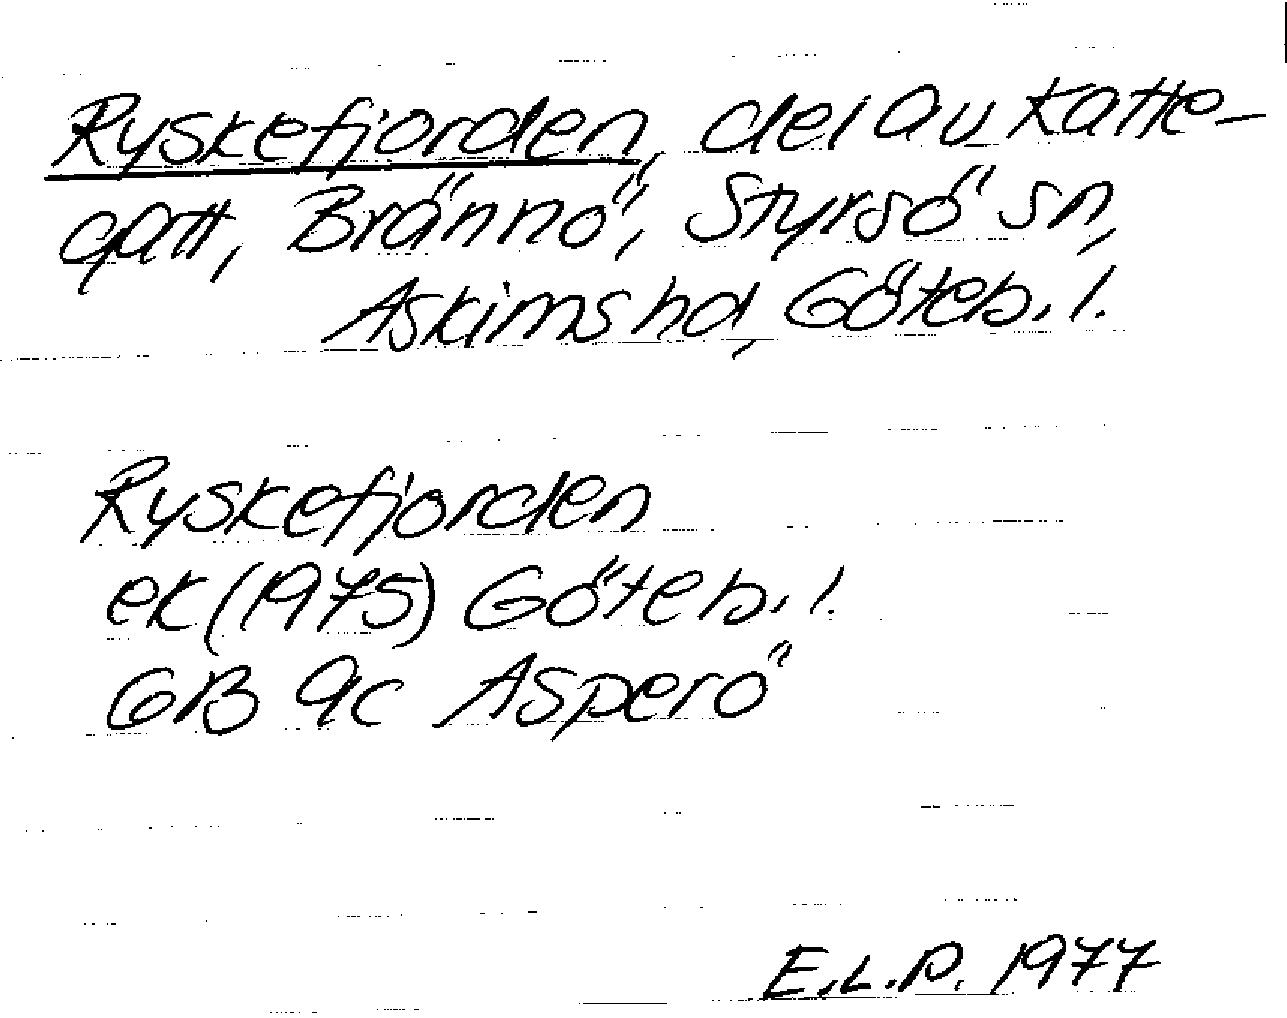 Ryskefjorden, del av Katte-
gatt, Brännö, Styrsö sn,
Askims hd, Göteb. l.
Ryskefjorden
ek (1975) Göteb. l.
GB 9c Asperö
E.L.P. 1977